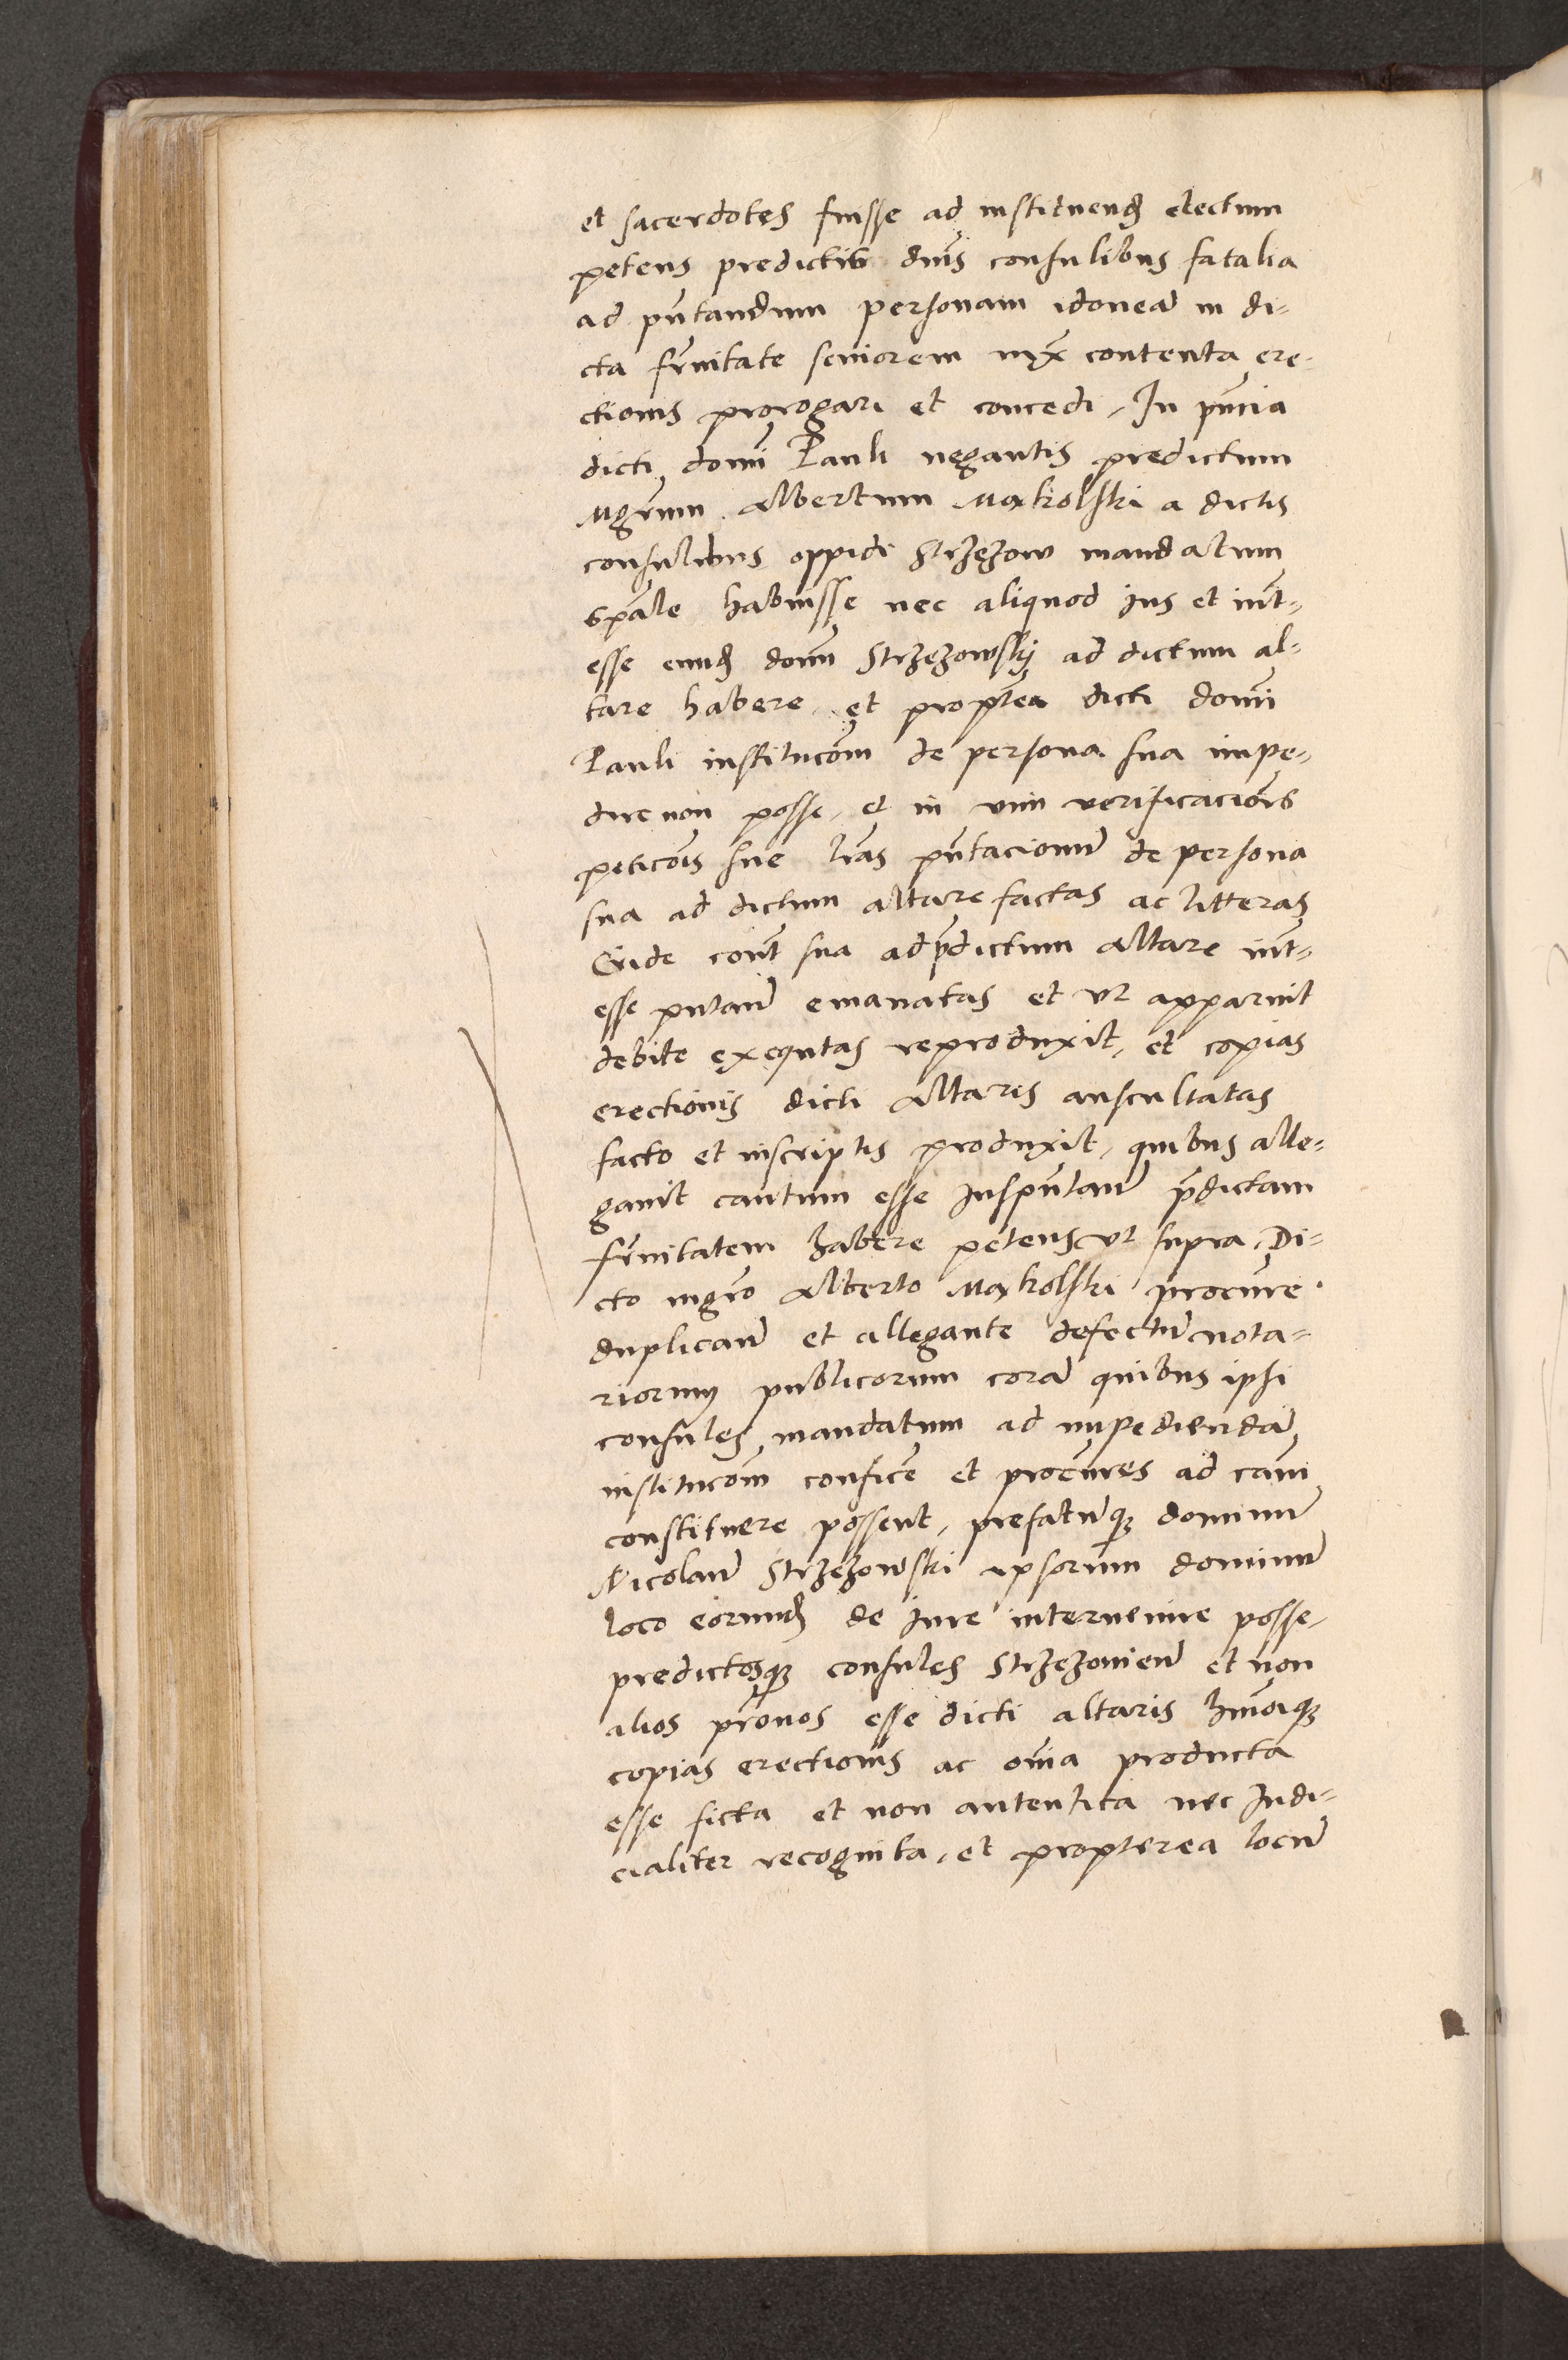 et sacerdotes fuisse ad instituend electum
petens predictis dnis consulibus fatalia
ad pntandum personam idoneã in di-
cta frnitate seniorem iuxta contenta ere-
ctionis prorogari et concedi, In pncia
dicti domi Pauli negantis predictum
Mgrum Albertum Makolski a dictis
consulibus oppidi Strzezow mandatum
spãle habuisse nec aliquod Jus et int-
esse eund domi Strzezowskij ad dictum al-
tare habere, et proptea dicti domi
Pauli institucõm de persona sua impe-
dire non posse, et in vim verificaciõis
peticõis sue lras pntacionũ de persona
sua ad dictum altare factas ac litteras
Cride cont sua ad pdictum altare int-
esse putanẽ emanatas et vt apparuit
debite exequtas reproduxit, et copias
erectionis dicti Altaris auscultatas
facto et inscriptis produxit, quibus alle-
gauit cautum esse Juspntanẽ pdictam
frnitatem habere petens vt supra, Di-
cto mgro Alberto Makolski procure
duplicanẽ et allegante defectũ nota-
riorum publicorum corã quibus ipsi
consules mandatum ad impediendã
institucõm conficẽ et procures ad cam
constituere possent, prefatũq; dominũ
Nicolaũ Strzezowski ipsorum dominũ
loco eorumd de Jure interuenire posse,
predictosq; consules Strzezouienẽ et non
alios prõnos esse dicti altaris hmõiq;
copias erectionis ac omia producta
esse ficta et non autentica nec Judi-
cialiter recognita, et propterea locũ